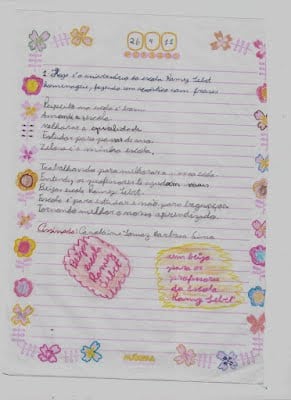 26 9 11
1. Hoje é o aniversário da escola Ramez Tebet
homenagem, fazendo um acróstico com frases
Respeito na escola é bom.
Amo minha escola.
Melhorar a qualidade
Estudar para passar de ano.
Zelar é a minha escola.
Trabalhando para melhorar a nossa escola.
Entender os professores
Beijos escola Ramez Tebet.
Escola é para estudar e não para bagunçar.
Tornando melhor o nosso aprendizado.
Assinado: Geraldaine Gomez Barbosa Lima
Beijos
escola
Ramez
Tebet
um beijo
para os
professores
da escola
Ramez Tebet
MÁXIMA